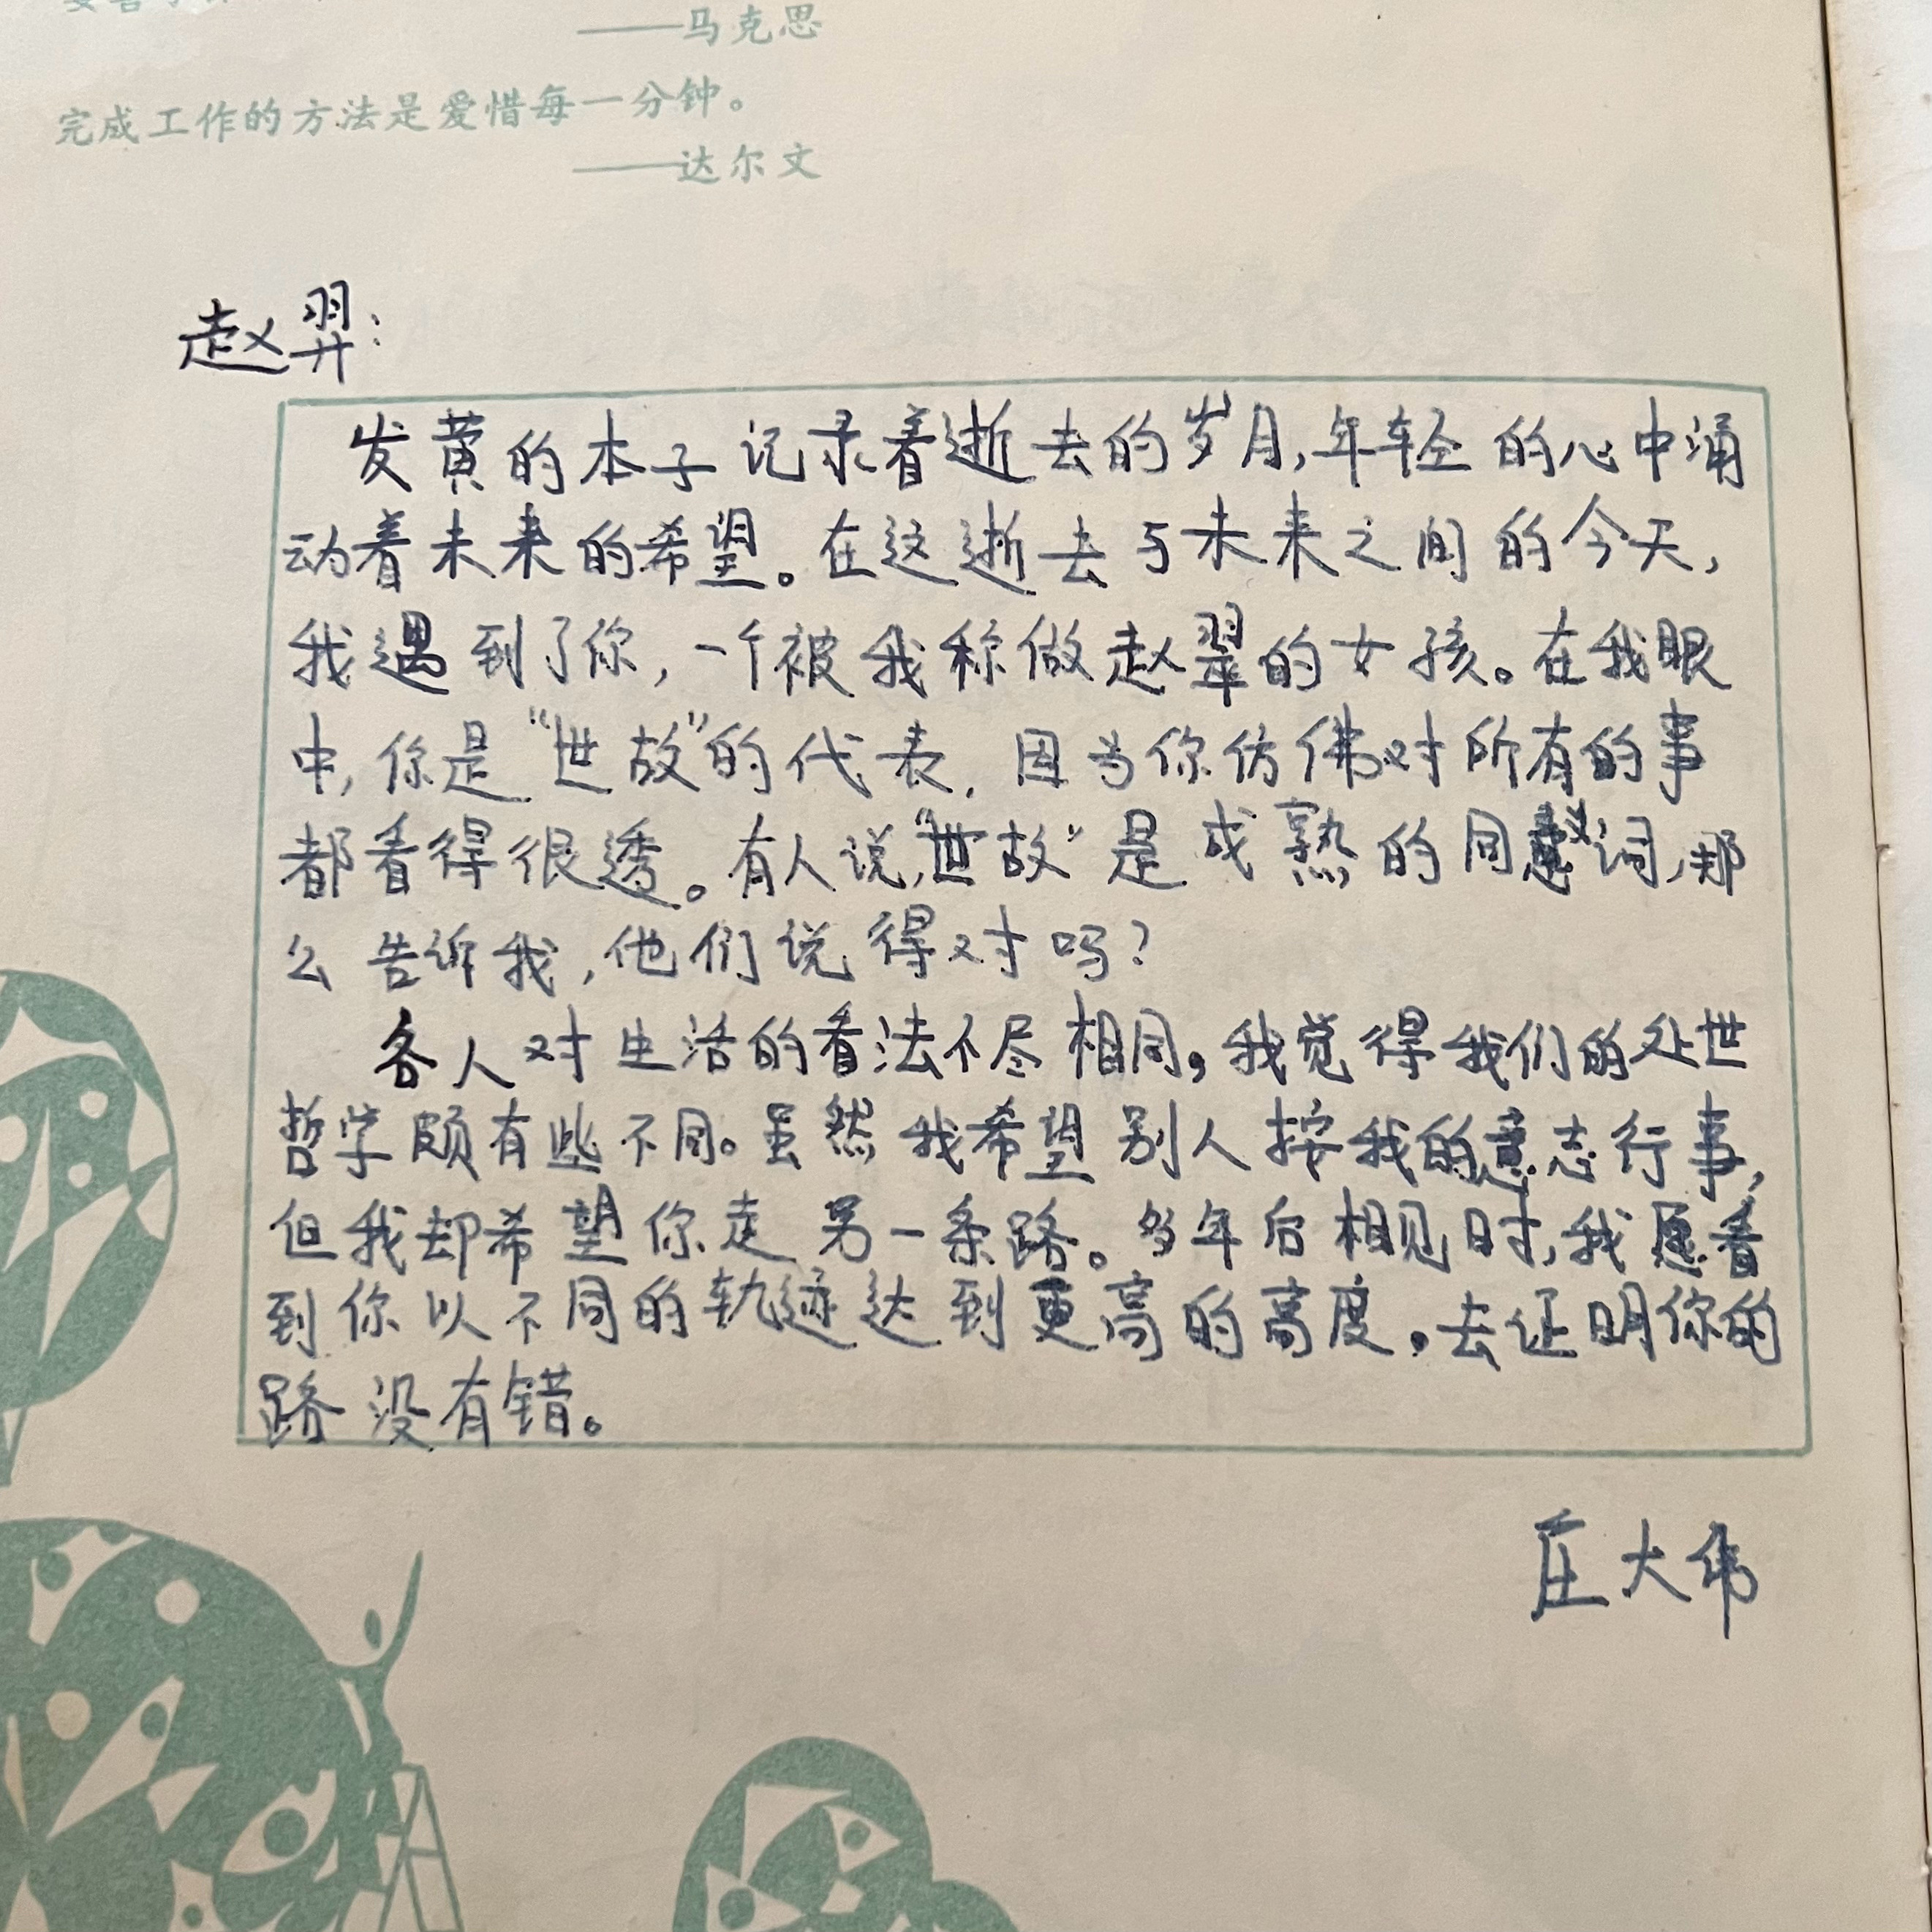 ——马克思
完成工作的方法是爱惜每一分钟。
——达尔文
赵羿:
发黄的本子记录着逝去的岁月,年轻的心中涌
动着未来的希望。在这逝去与未来之间的今天,
我遇到了你,一个被我称做赵翠的女孩。在我眼
中,你是“世故”的代表,因为你仿佛对所有的事
都看得很透。有人说,“世故”是成熟的同义词,那
么告诉我,他们说得对吗?
各人对生活的看法不尽相同,我觉得我们的处世
哲学颇有些不同。虽然我希望别人按我的意志行事,
但我却希望你走另一条路。多年后相见时,我愿看
到你以不同的轨迹达到更高的高度。去证明你的
路没有错。
庄大伟